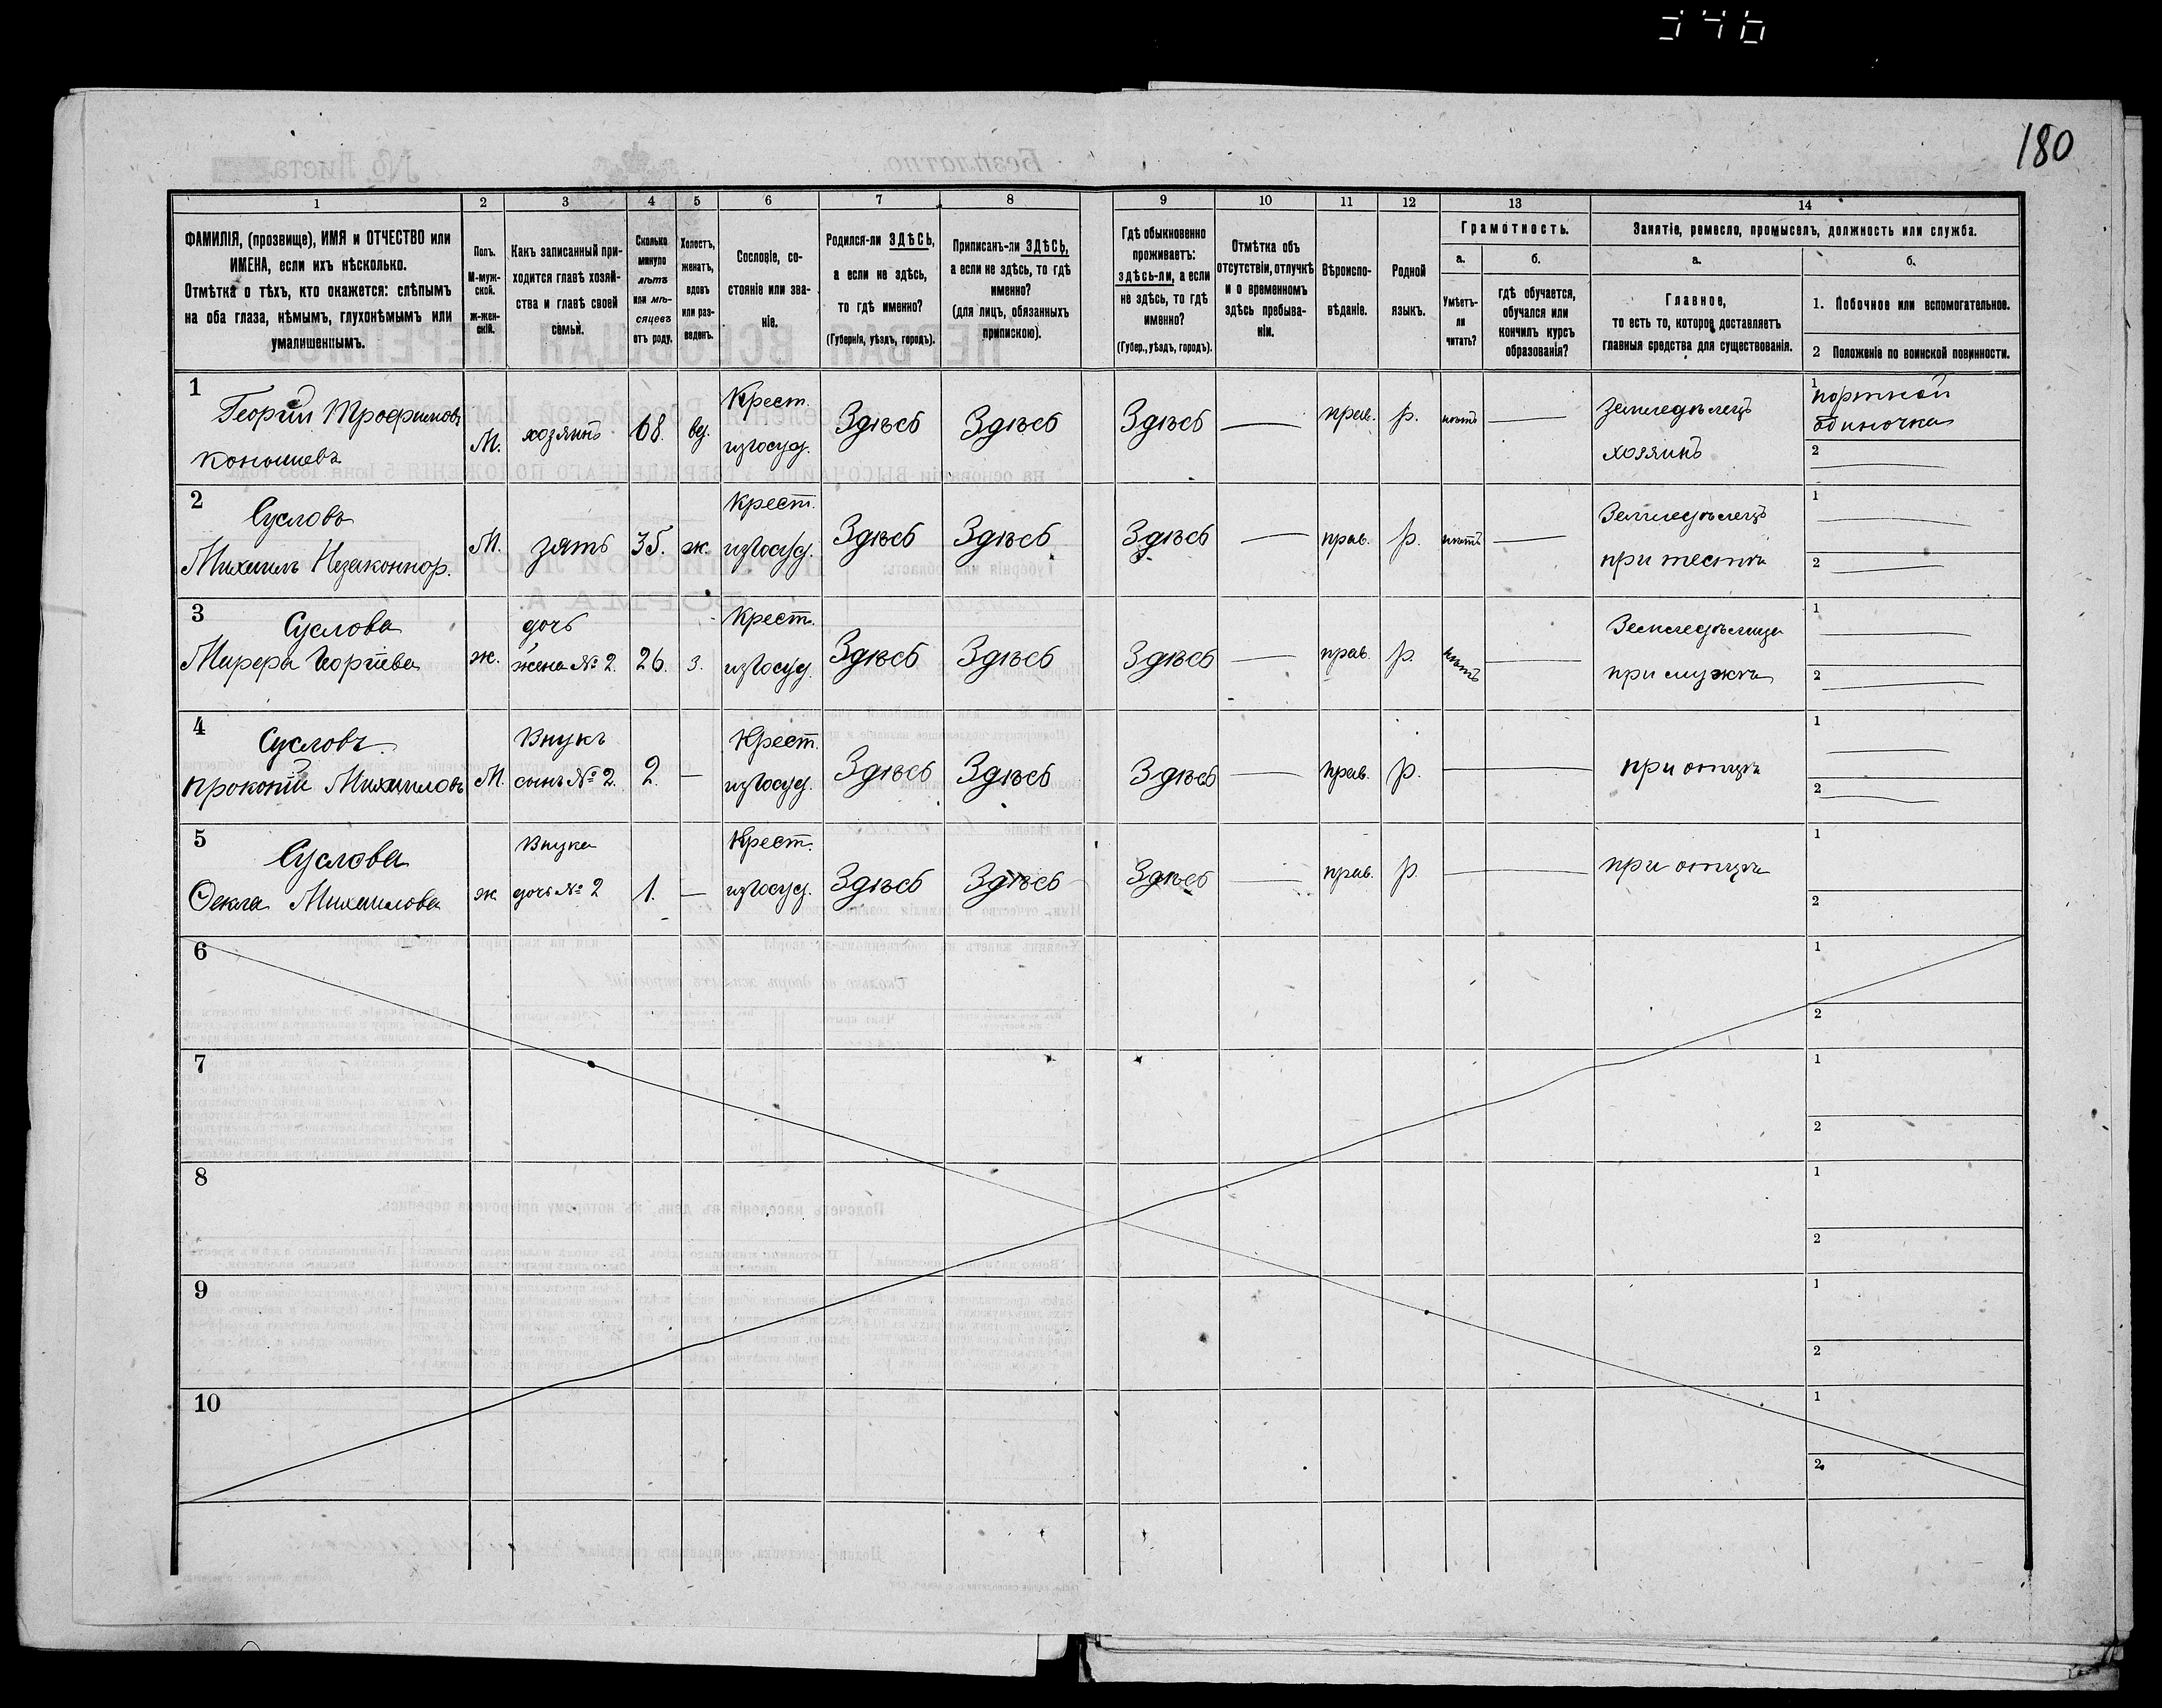 180
1 2 3 4 5 6 7 8 9 10 11 12 13 14
ФАМИЛІЯ, (прозвище), ИМЯ и ОТЧЕСТВО или
ИМЕНА, если ихъ нѣсколько.
Отмѣтка о тѣхъ, кто окажется: слѣпымъ
на оба глаза, нѣмымъ, глухонѣмымъ или
умалишеннымъ.
Полъ.
М-муж-
ской.
ж-жен-
скій.
Какъ записанный при-
ходится главѣ хозяй-
ства и главѣ своей
семьи.
Сколько
минуло
лѣтъ
или мѣ-
сяцевъ
отъ роду.
Холостъ,
женатъ,
вдовъ
или раз-
веденъ.
Сословіе, со-
стояніе или зва-
ніе.
Родился-ли ЗДѢСЬ,
а если не здѣсь,
то гдѣ именно?
(Губернія, уѣздъ, городъ).
Приписанъ-ли ЗДѢСЬ,
а если не здѣсь, то гдѣ
именно?
(для лицъ, обязанныхъ
припискою).
Гдѣ обыкновенно
проживаетъ:
здѣсь-ли, а если
не здѣсь, то гдѣ
именно?
(Губер., уѣздъ, городъ).
Отмѣтка объ
отсутствіи, отлучкѣ
и о временномъ
здѣсь пребыва-
ніи.
Вѣроиспо-
вѣданіе.
Родной
языкъ.
Грамотность.
а.
Умѣетъ-
ли
читать?
б.
гдѣ обучается,
обучался или
кончилъ курсъ
образованія?
Занятіе, ремесло, промыселъ, должность или служба.
а.
Главное,
то есть то, которое доставляетъ
главныя средства для существованія.
б.
1. Побочное или вспомогательное.
2 Положеніе по воинской повинности.
1
Георгій Трофимовъ
Конышевъ
М.
хозяинъ
68.
вд.
Крест.
изъ госуд.
Здѣсь
Здѣсь
Здѣсь
прав.
р.
нѣтъ
земледѣлецъ
хозяинъ
1
портной
одиночка
2
2
Сусловъ
Михаилъ Незаконнор.
М.
зять
35.
ж.
Крест.
изъ госуд.
Здѣсь
Здѣсь
Здѣсь
прав.
р.
нѣтъ
Земледѣлецъ
при тестѣ
1
2
3
Суслова
Марфа Георгіева
ж.
дочь
жена № 2.
26.
з.
Крест.
изъ госуд.
Здѣсь
Здѣсь
Здѣсь
прав.
р.
нѣтъ
Земледѣлица
при мужѣ
1
2
4
Сусловъ
Прокопій Михаиловъ
М.
Внукъ
сынъ № 2.
2.
Крест.
изъ госуд.
Здѣсь
Здѣсь
Здѣсь
прав.
р.
при отцѣ
1
2
5
Суслова
Ѳекла Михаилова
ж
Внука
дочь № 2
1.
Крест.
изъ госуд.
Здѣсь
Здѣсь
Здѣсь
прав.
р.
при отцѣ
1
2
6
1
2
7
1
2
8
1
2
9
1
2
10
1
2